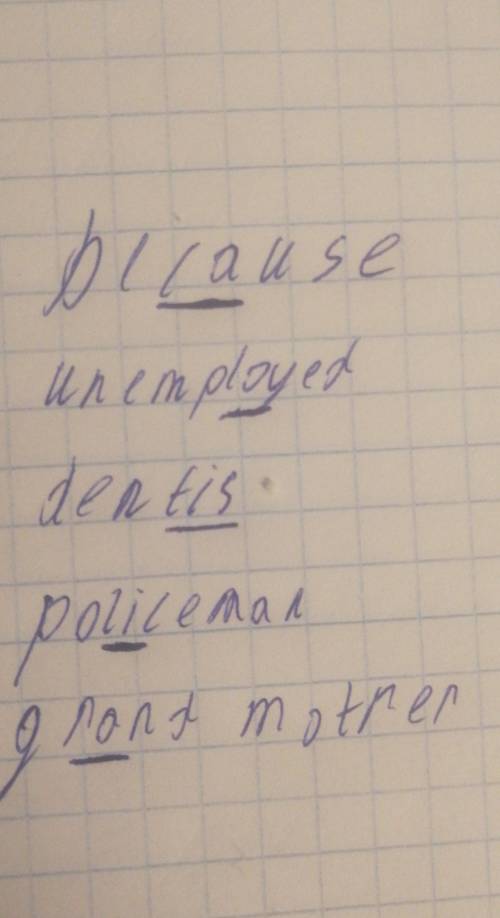 because
unemployed
dentis
policeman
grand mother